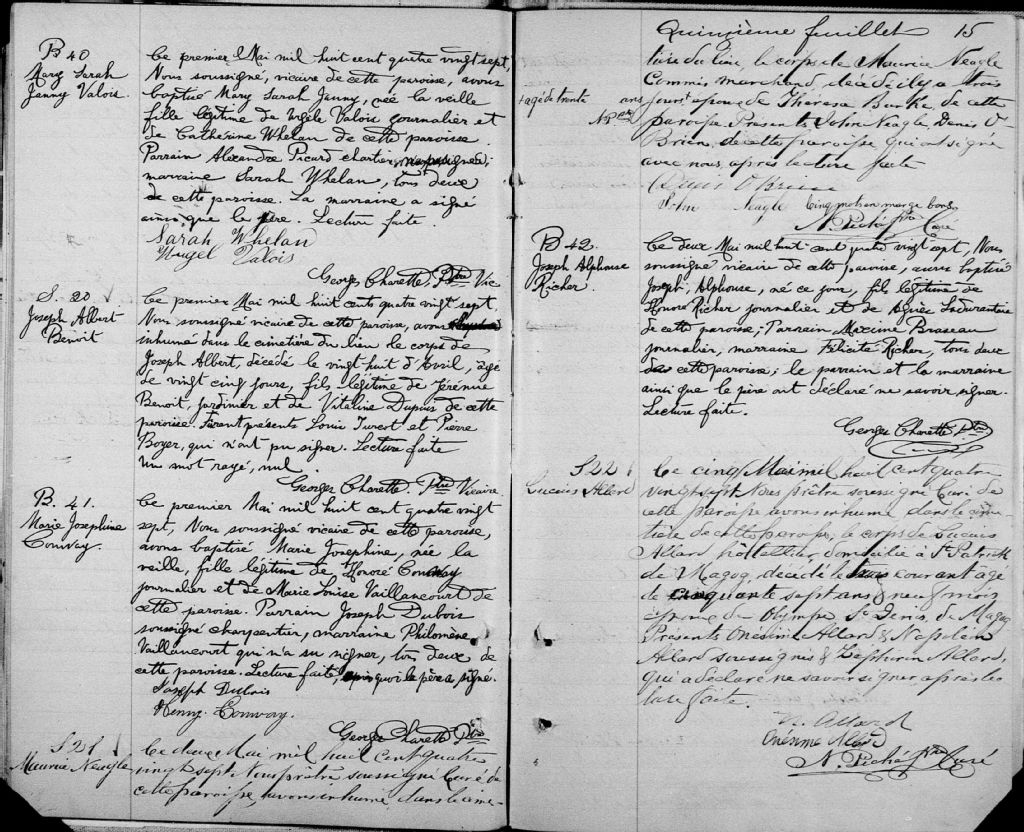 B 40
Mary Sarah
Janny Valois.
Ce premier Mai mil huit cent quatre vingt sept,
Nous soussigné, vicaire de cette paroisse, avons
baptisé Mary Sarah Janny, née la veille
fille légitime de Vigile Valois journalier et
de Catherine Whelan de cette paroisse.
Parrain Alexandre Picard chartier, soussigné;
marraine Sarah Whelan, tous deux
de cette paroisse. La marraine a signé
ainsi que le père. Lecture faite.
Sarah Whelan
Valois
Georges Charette, Ptre Vic
S. 20
Joseph Albert
Benoit
Ce premier Mai mil huit cents quatre vingt sept.
Nous soussigné vicaire de cette paroisse, avons
inhumé dans le cimetière du lieu le corps de
Joseph Albert, décédé le vingt huit d'Avril, âgé
de vingt cinq jours, fils légitime de Jérémie
Benoit, jardinier et de Vitaline Dupuis de cette
paroisse. Furent présents Louis Turcot et Pierre
Boyer, qui n'ont pu signer. Lecture faite
Un mot rayé, nul.
Georges Charette. Ptre Vicaire
B. 41.
Marie Josephine
Conway.
Ce premier Mai mil huit cent quatre vingt
sept, Nous soussigné vicaire de cette paroisse,
avons baptisé Marie Josephine, née la
veille, fille légitime de Honoré Conway
journalier et de Marie Louise Vaillancourt de
cette paroisse. Parrain Joseph Dubois
soussigné charpentier, marraine Philomène
Vaillancourt qui n'a su signer, tous deux de
cette paroisse. Lecture faite, après quoi le père a signé.
Joseph Dubois
Henry Conway.
Georges Charette Ptre
S. 21
Maurice Neagle
Ce deux Mai mil huit cent quatre
vingt sept Nous prêtre soussigné Curé de
cette paroisse avons inhumé dans le cime-
Quinzième feuillet 15
tière du lieu, le corps de Maurice Neagle
Commis marchand, décédé il y a trois
+ agé de trente ans
jours+ époux de Theresa Burke, de cette
N. P. Ptre
paroisse. Présents John Neagle, Denis O'
Brien, de cette paroisse qui ont signé
avec nous après lecture faite
Denis O'Brien
John Neagle Cinq mots en marge bons
N. Piché Ptre Curé
B 42.
Joseph Alphonse
Richer.
Ce deux Mai mil huit cent quatre vingt sept, Nous
soussigné vicaire de cette paroisse, avons baptisé
Joseph Alphonse, né ce jour, fils légitime de
Honoré Richer journalier et de Agnès
de cette paroisse; Parrain Maxime Brazeau
journalier, marraine Félicité Richer, tous deux
de cette paroisse; le parrain et la marraine
ainsi que le père ont déclaré ne savoir signer.
Lecture faite.
Georges Charette Ptre
S 22
Lucius Allard
Ce cinq Mai mil huit cent quatre
vingt sept Nous prêtre soussigné Curé de
cette paroisse avons inhumé dans le cime-
tière de cette paroisse, le corps de Lucius
Allard domicilié à St Patrick
de Magog, décédé le trois courant agé
de cinquante sept ans & neuf mois
époux de Olympe St Denis, de Magog
Présents Onésime Allard & Napoléon
Allard soussignés & Zéphirin Allard,
qui a déclaré ne savoir signer, après lec
ture faite.
N. Allard
Onésime Allard
N. Piché Ptre Curé